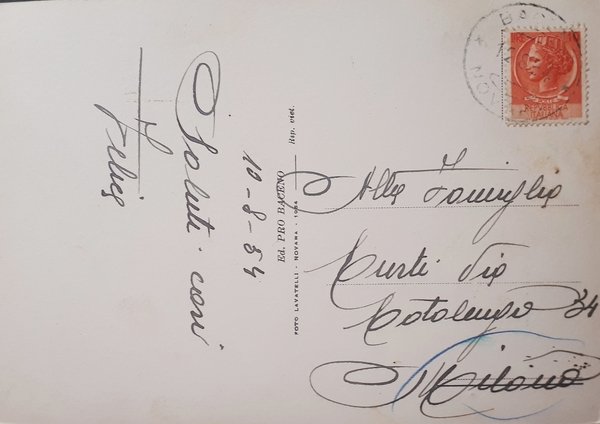 Saluti cari
Felice
10-8-54
Ed. PRO BACENO Rip. viet.
FOTO LAVATELLI - NOVARA - 1954
Alla Famiglia
Curti Via
Cotolengo 34
Milano
REPUBBLICA
ITALIANA